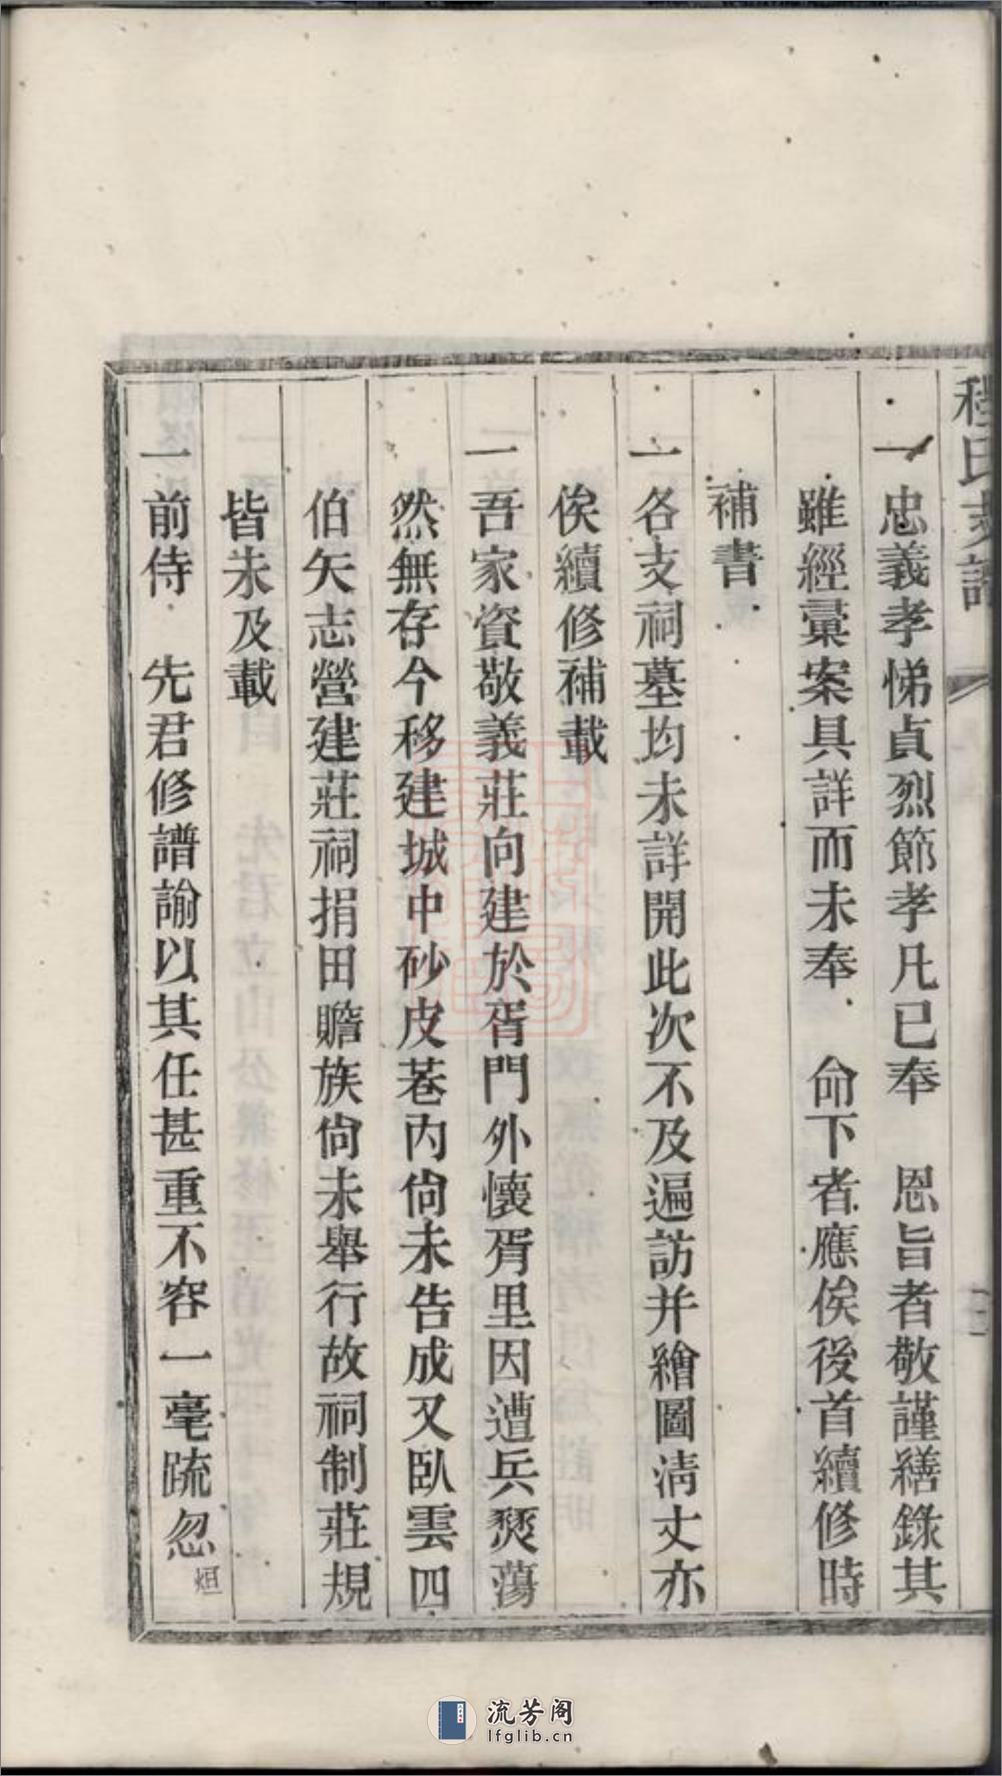 程氏支譜
一忠義孝悌貞烈節孝凡已奉　恩旨者敬謹繕錄其
雖經彙案具詳而未奉　命下者應俟後首續修時
補書
一各支祠墓均未詳開此次不及遍訪并繪圖淸丈亦
俟續修補載
一吾家資敬義莊向建於胥門外懷胥里因遭兵燹蕩
然無存今移建城中砂皮巷內尙未告成又臥雲四
伯矢志營建莊祠捐田贍族尙未舉行故祠制莊規
皆未及載
一前侍　先君修譜諭以其任甚重不容一毫疏忽烜
流芳阁
lfglib.cn